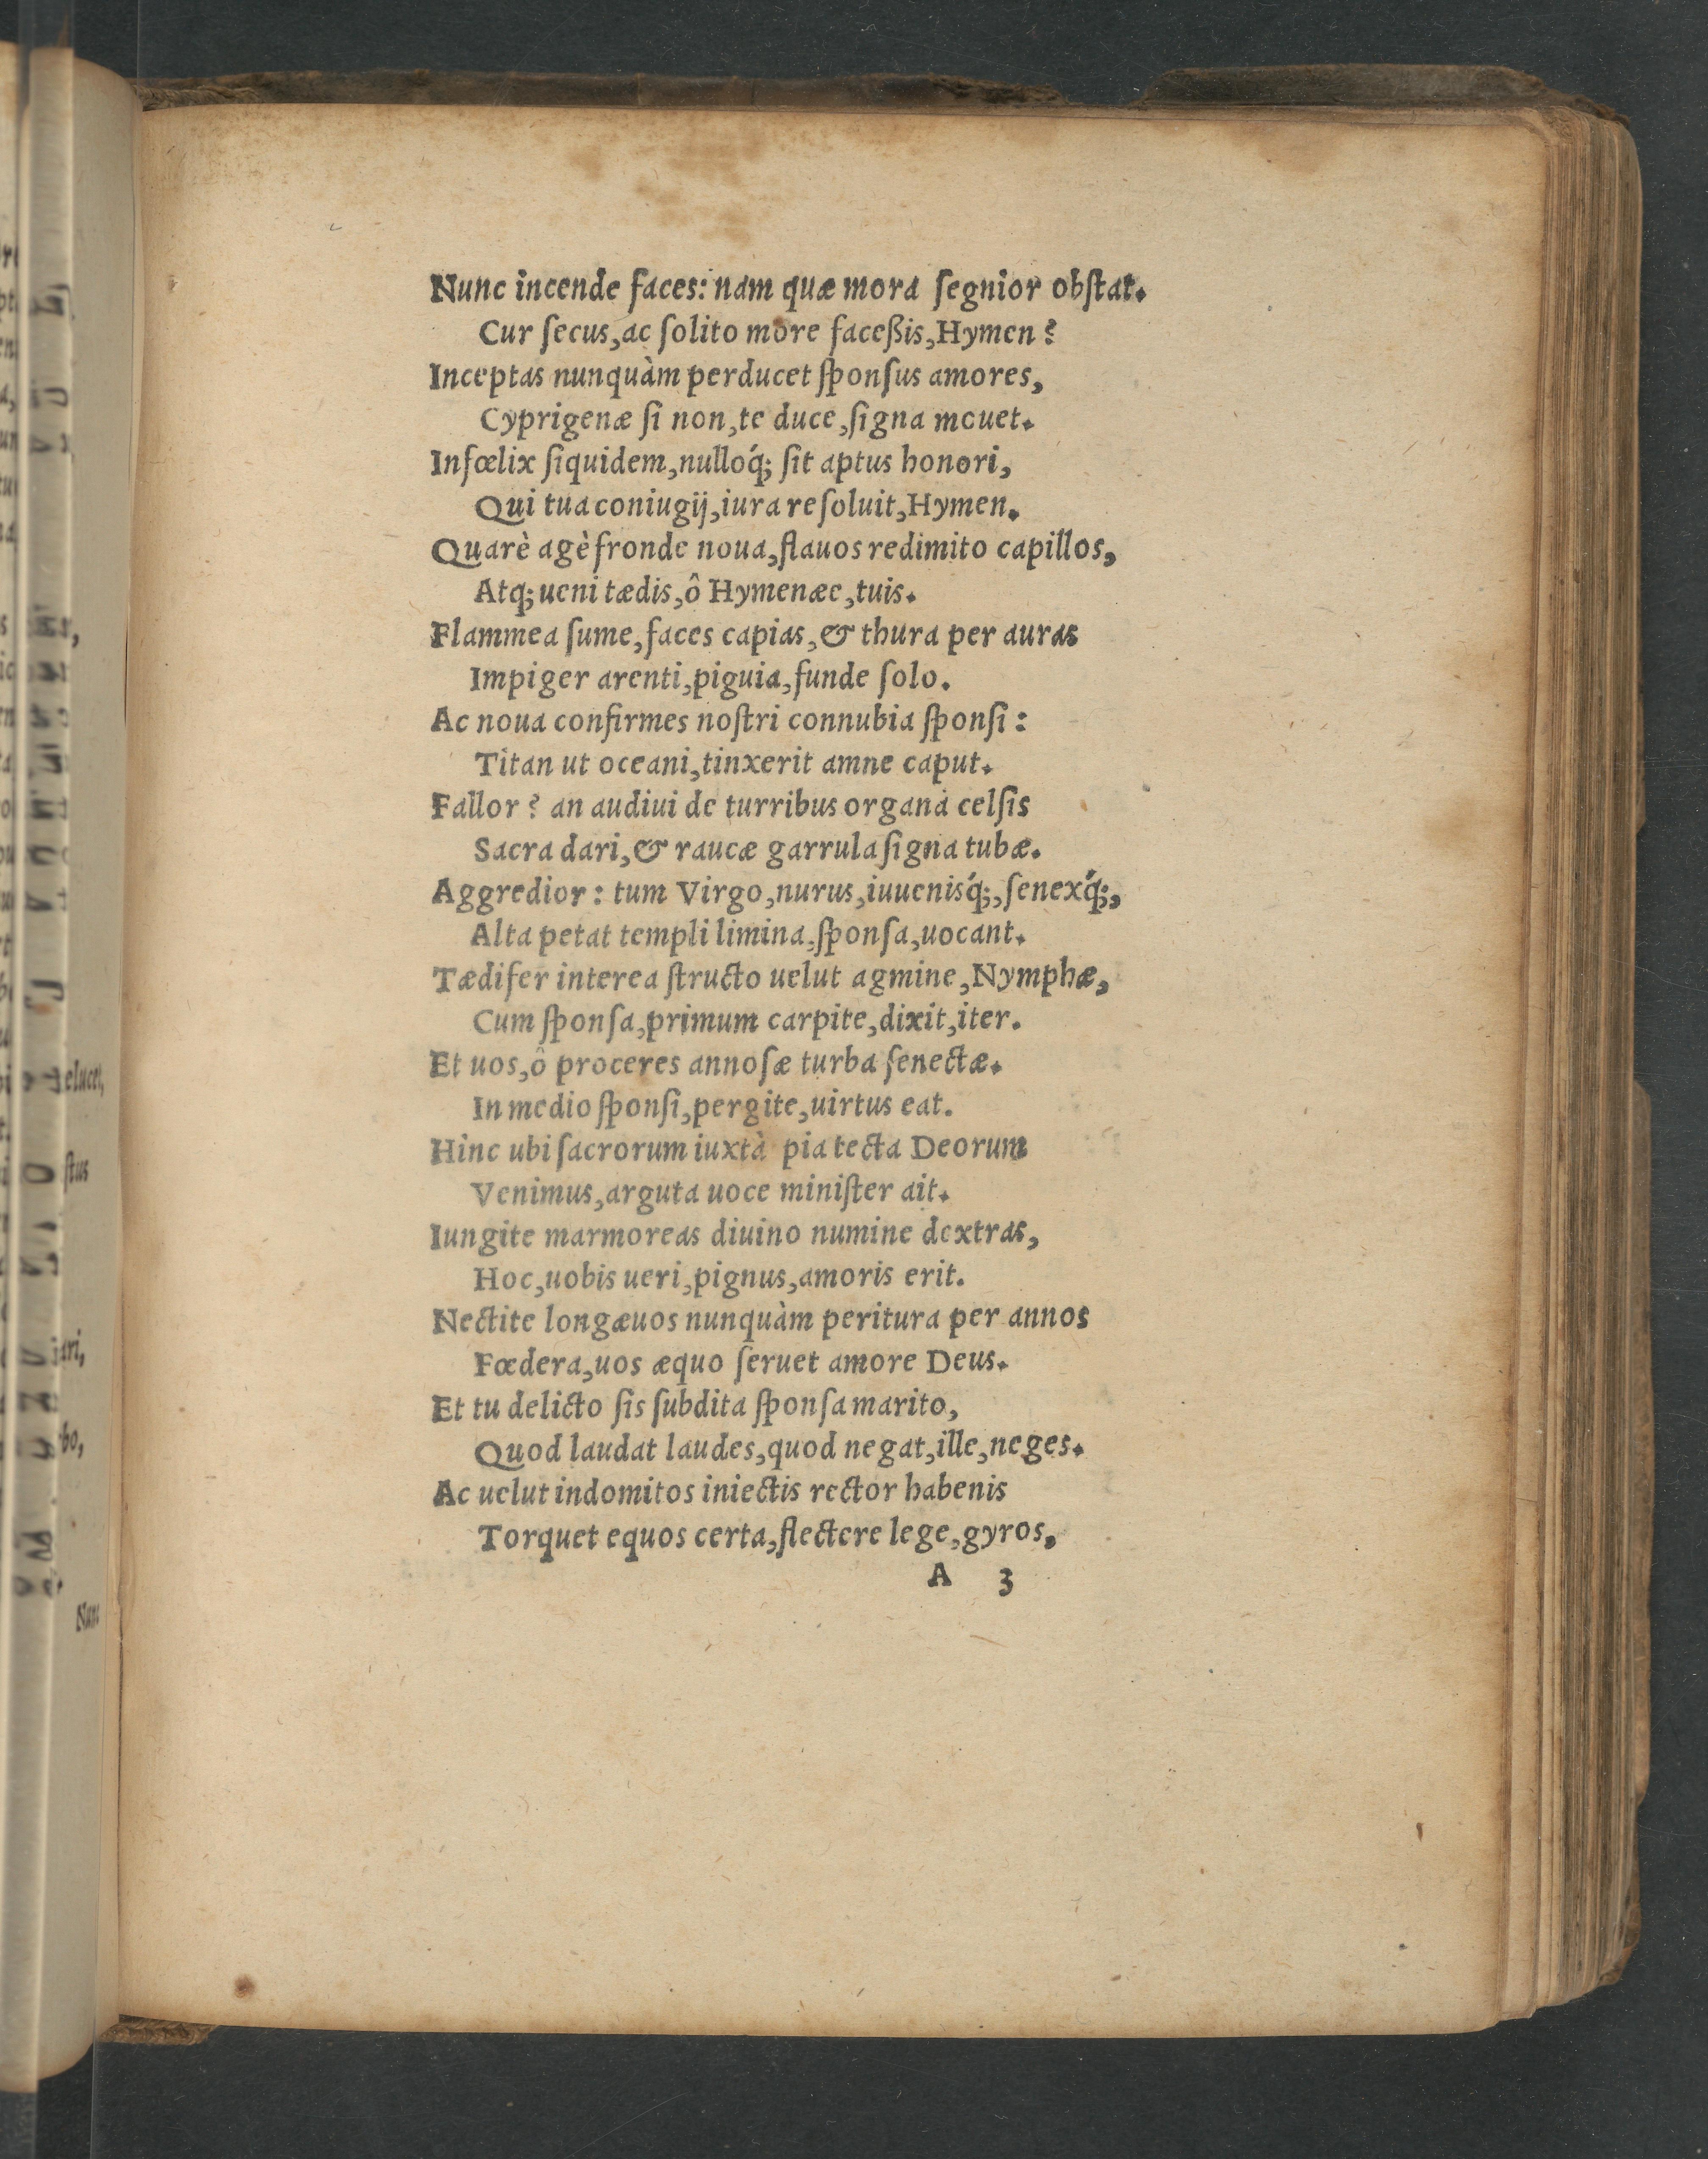 Nunc incende faces: nam quæ mora ſegnior obſtat.
Cur ſecus, ac ſolito more faceßis, Hymen?
Inceptas nunquàm perducet ſponſus amores,
Cyprigenæ ſi non, te duce, ſigna mouet.
Infœlix ſiquidem, nulloq́; ſit aptus honori,
Qui tua coniugij, iura reſoluit, Hymen.
Quarè agè fronde noua, flauos redimito capillos,
Atq; ueni tædis, ô Hymenæe, tuis.
Flammea ſume, faces capias, & thura per auras
Impiger arenti, piguia, funde ſolo.
Ac noua confirmes noſtri connubia ſponſi:
Titan ut oceani, tinxerit amne caput.
Fallor? an audiui de turribus organa celſis
Sacra dari, & raucæ garrula ſigna tubæ.
Aggredior: tum Virgo, nurus, iuuenisq́;, ſenexq́;,
Alta petat templi limina, ſponſa, uocant.
Tædifer interea ſtructo uelut agmine, Nymphæ,
Cum ſponſa, primum carpite, dixit, iter.
Et uos, ô proceres annoſæ turba ſenectæ.
In medio ſponſi, pergite, uirtus eat.
Hinc ubi ſacrorum iuxtà pia tecta Deorum
Venimus, arguta uoce miniſter ait.
Iungite marmoreas diuino numine dextras,
Hoc, uobis ueri, pignus, amoris erit.
Nectite longæuos nunquàm peritura per annos
Fœdera, uos æquo ſeruet amore Deus.
Et tu delicto ſis ſubdita ſponſa marito,
Quod laudat laudes, quod negat, ille, neges.
Ac uelut indomitos iniectis rector habenis
Torquet equos certa, flectere lege, gyros,
A 3